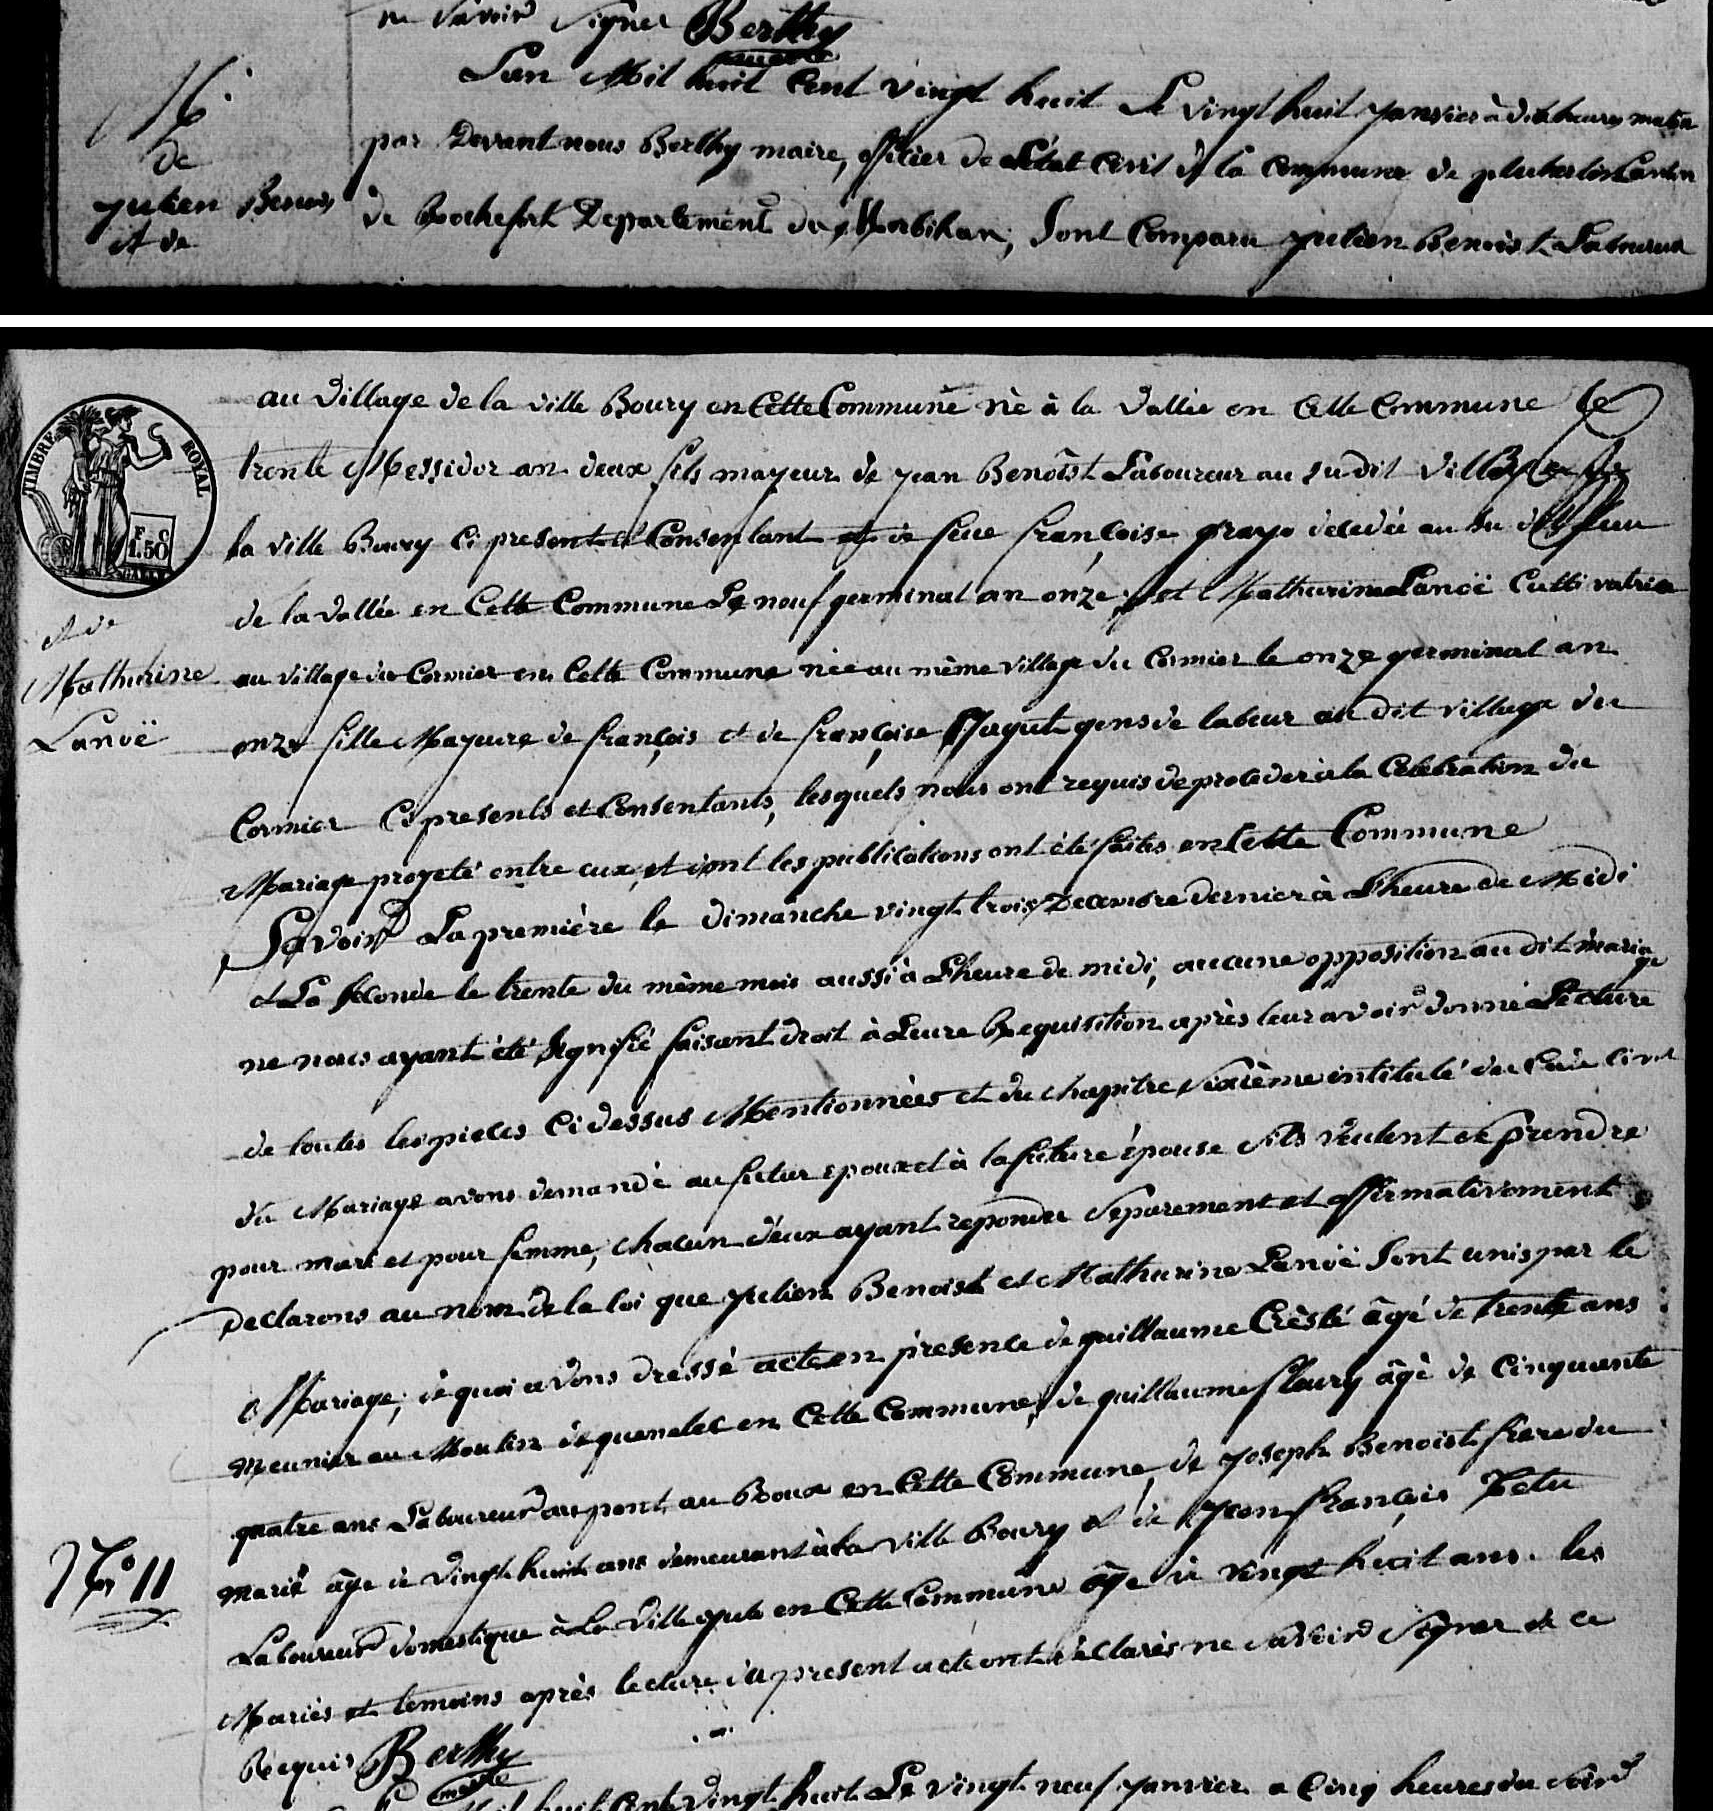 ne Savoir Signer Berthy
maire
L'an Mil huit Cent vingt huit Le vingt huit janvier à dix heures matin
M.
de
julien Benoist
et de
par Devant nous Berthy maire, officier de L'état Civil de la Commune de pluherlin Canton
de Rochefort Departement du Morbihan, Sont Comparu julien Benoist Laboureur
au village de la ville Boury en Cette Commune né à la vallée en Cette Commune le
TIMBRE ROYAL
F. C
1.50
trente Messidor an deux fils mayeur de jean Benoist Laboureur au sudit village de
la ville Boury Ci present et Consentant et de feue françoise grayo décedée au su dit lieu
de la vallée en Cette Commune Le neuf germinal an onze; et Mathurine Lanoë Cultivatrice
et de
Mathurine
Lanoë
au village du Cormier en Cette Commune née au même village du Cormier le onze germinal an
onze fille Mayeure de françois et de françoise Jagut gens de labeur au dit village du
Cormier Ci presents et Consentants, lesquels nous ont requis de proceder à la Celebration du
Mariage projeté entre eux, et dont les publications ont été faites en Cette Commune
Savoir La première le dimanche vingt trois Decembre dernier à L'heure de Midi
et La seconde le trente du même mois aussi à L'heure de midi, aucune opposition au dit mariage
ne nous ayant été signifié faisant droit à Leure Requisition après leur avoir donné Lecture
de toutes les pieces Ci dessus Mentionnées et du chapitre sixième intitulé du Code Civil
du Mariage avons demandé au futur epoux et à la future épouse s'ils veulent se prendre
pour mari et pour femme, chacun d'eux ayant repondu Separement et affirmativement
Declarons au nom de la loi que julien Benoist et Mathurine Lanoë Sont unis par le
Mariage; de quoi avons dressé acte en présence de guillaume Crèsté âgé de trente ans
Meunier au Moulin de quenelec en Cette Commune, de guillaume fleury âgé de Cinquante
quatre ans Laboureur au pont au Roux en Cette Commune, de joseph Benoist frère du
Marié âge de vingt huit ans demeurant à la ville Boury et de jean françois Tetu
N° 11
Laboureur domestique à La ville jute en Cette Commune âge de vingt huit ans. les
Mariés et temoins après lecture du present acte ont declarés ne Savoir Signer de ce
Requis Berthy
maire
Mil huit Cent vingt huit Le vingt neuf janvier a Cinq heures du Soir